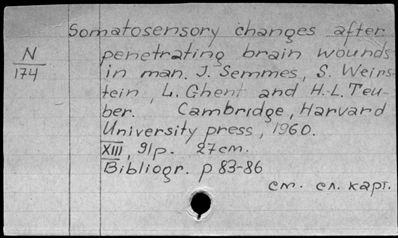 Somatosensory changes after
N
174
penetrating brain wounds
in man. J. Semmes, S. Weins-
tein, L. Ghent and H.-L. Teu-
ber. Cambridge, Harvard
University press, 1960.
XIII, 91p. 27cm.
Bibliogr. p 83-86
см. сл. карт.